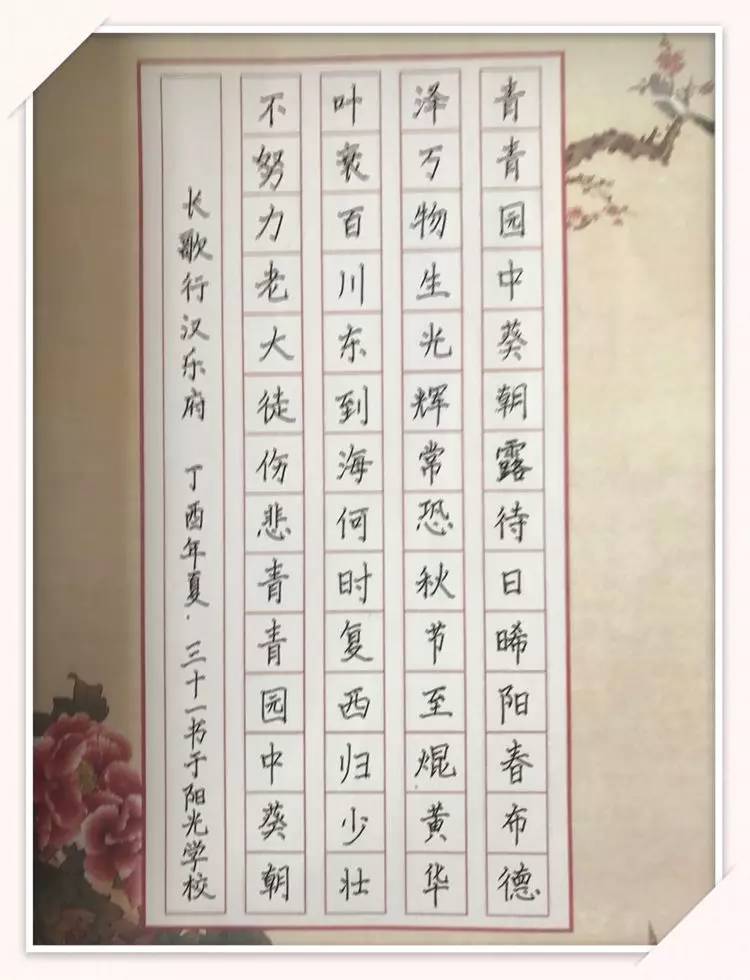 青青园中葵朝露待日晞阳春布德
泽万物生光辉常恐秋节至焜黄华
叶衰百川东到海何时复西归少壮
不努力老大徒伤悲青青园中葵朝
长歌行汉乐府 丁酉年夏·三十一书于阳光学校